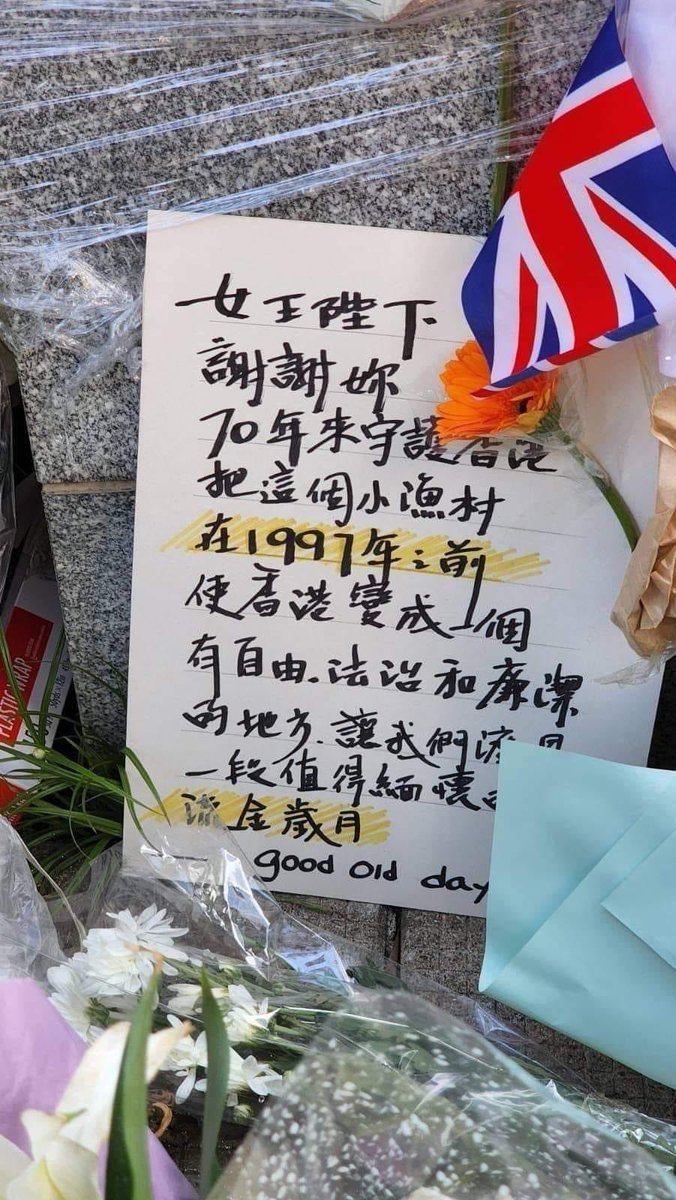 女王陛下
謝謝妳
70年來守護香港
把這個小漁村
在1997年之前
使香港變成一個
有自由、法治和廉潔
的地方、讓我們渡
一段值得緬懷
流金歲月
good old day
PLASTIC WRAP